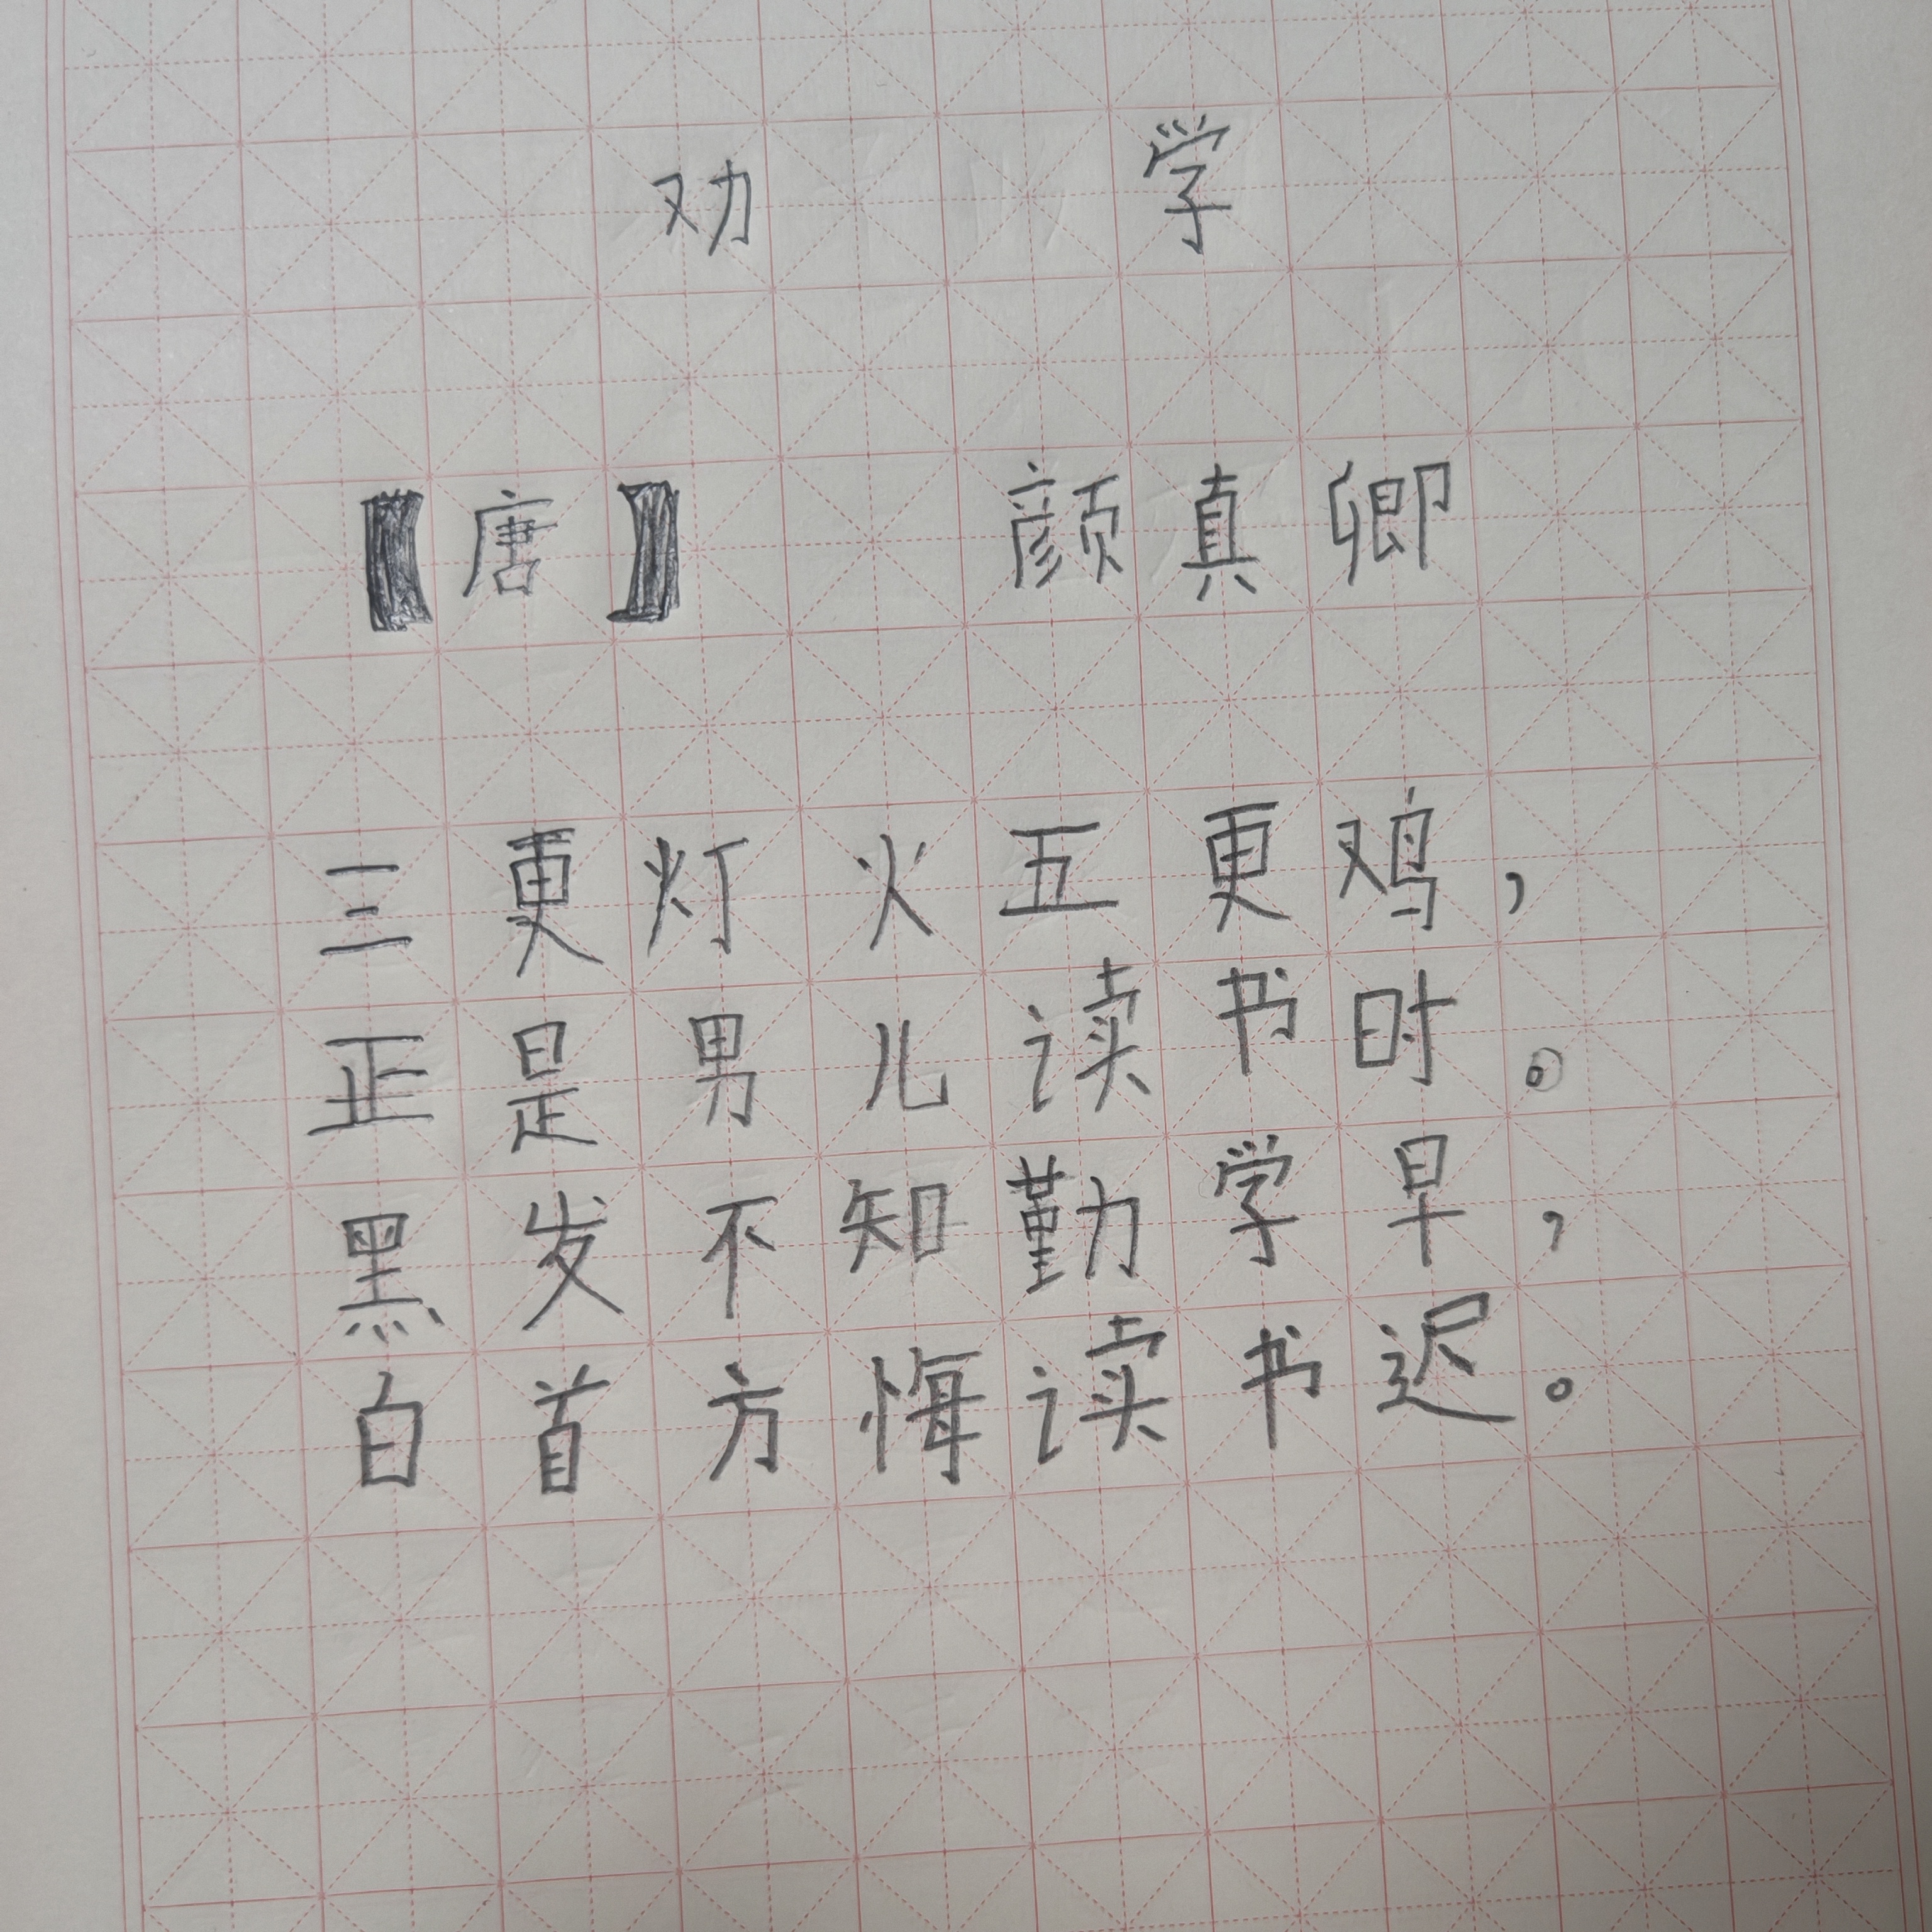 劝学
【唐】 颜真卿
三更灯火五更鸡，
正是男儿读书时。
黑发不知勤学早，
白首方悔读书迟。